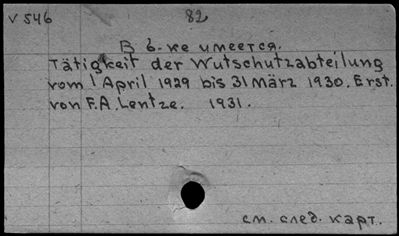 V 546 82
В б-ке имеется.
Tätigkeit der Wutschutzabteilung
vom 1 April 1929 bis 31 März 1930. Erst.
von F.A. Lentze. 1931.
см. след. карт.